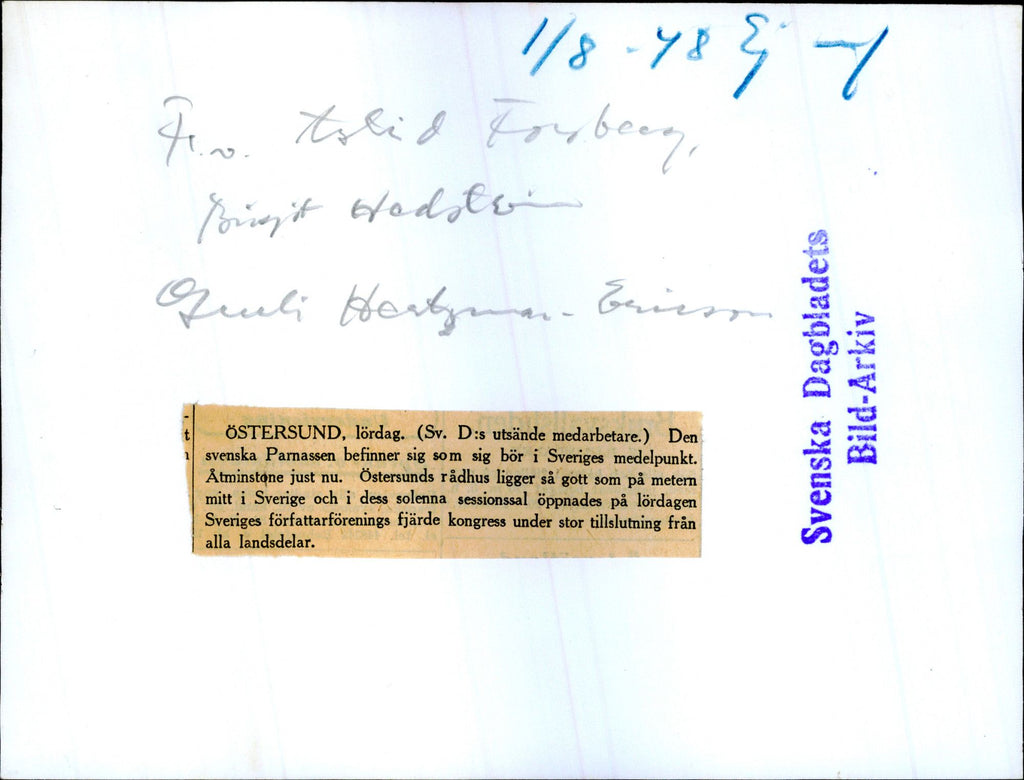 1/8 - 48 Ej
Fr. v. Astrid Forsberg,
Birgit Hedstein
Gurli Hertzman-Ericson
Svenska Dagbladets
Bild-Arkiv
ÖSTERSUND, lördag. (Sv. D:s utsände medarbetare.) Den
svenska Parnassen befinner sig som sig bör i Sveriges medelpunkt.
Åtminstone just nu. Östersunds rådhus ligger så gott som på metern
mitt i Sverige och i dess solenna sessionssal öppnades på lördagen
Sveriges författarförenings fjärde kongress under stor tillslutning från
alla landsdelar.